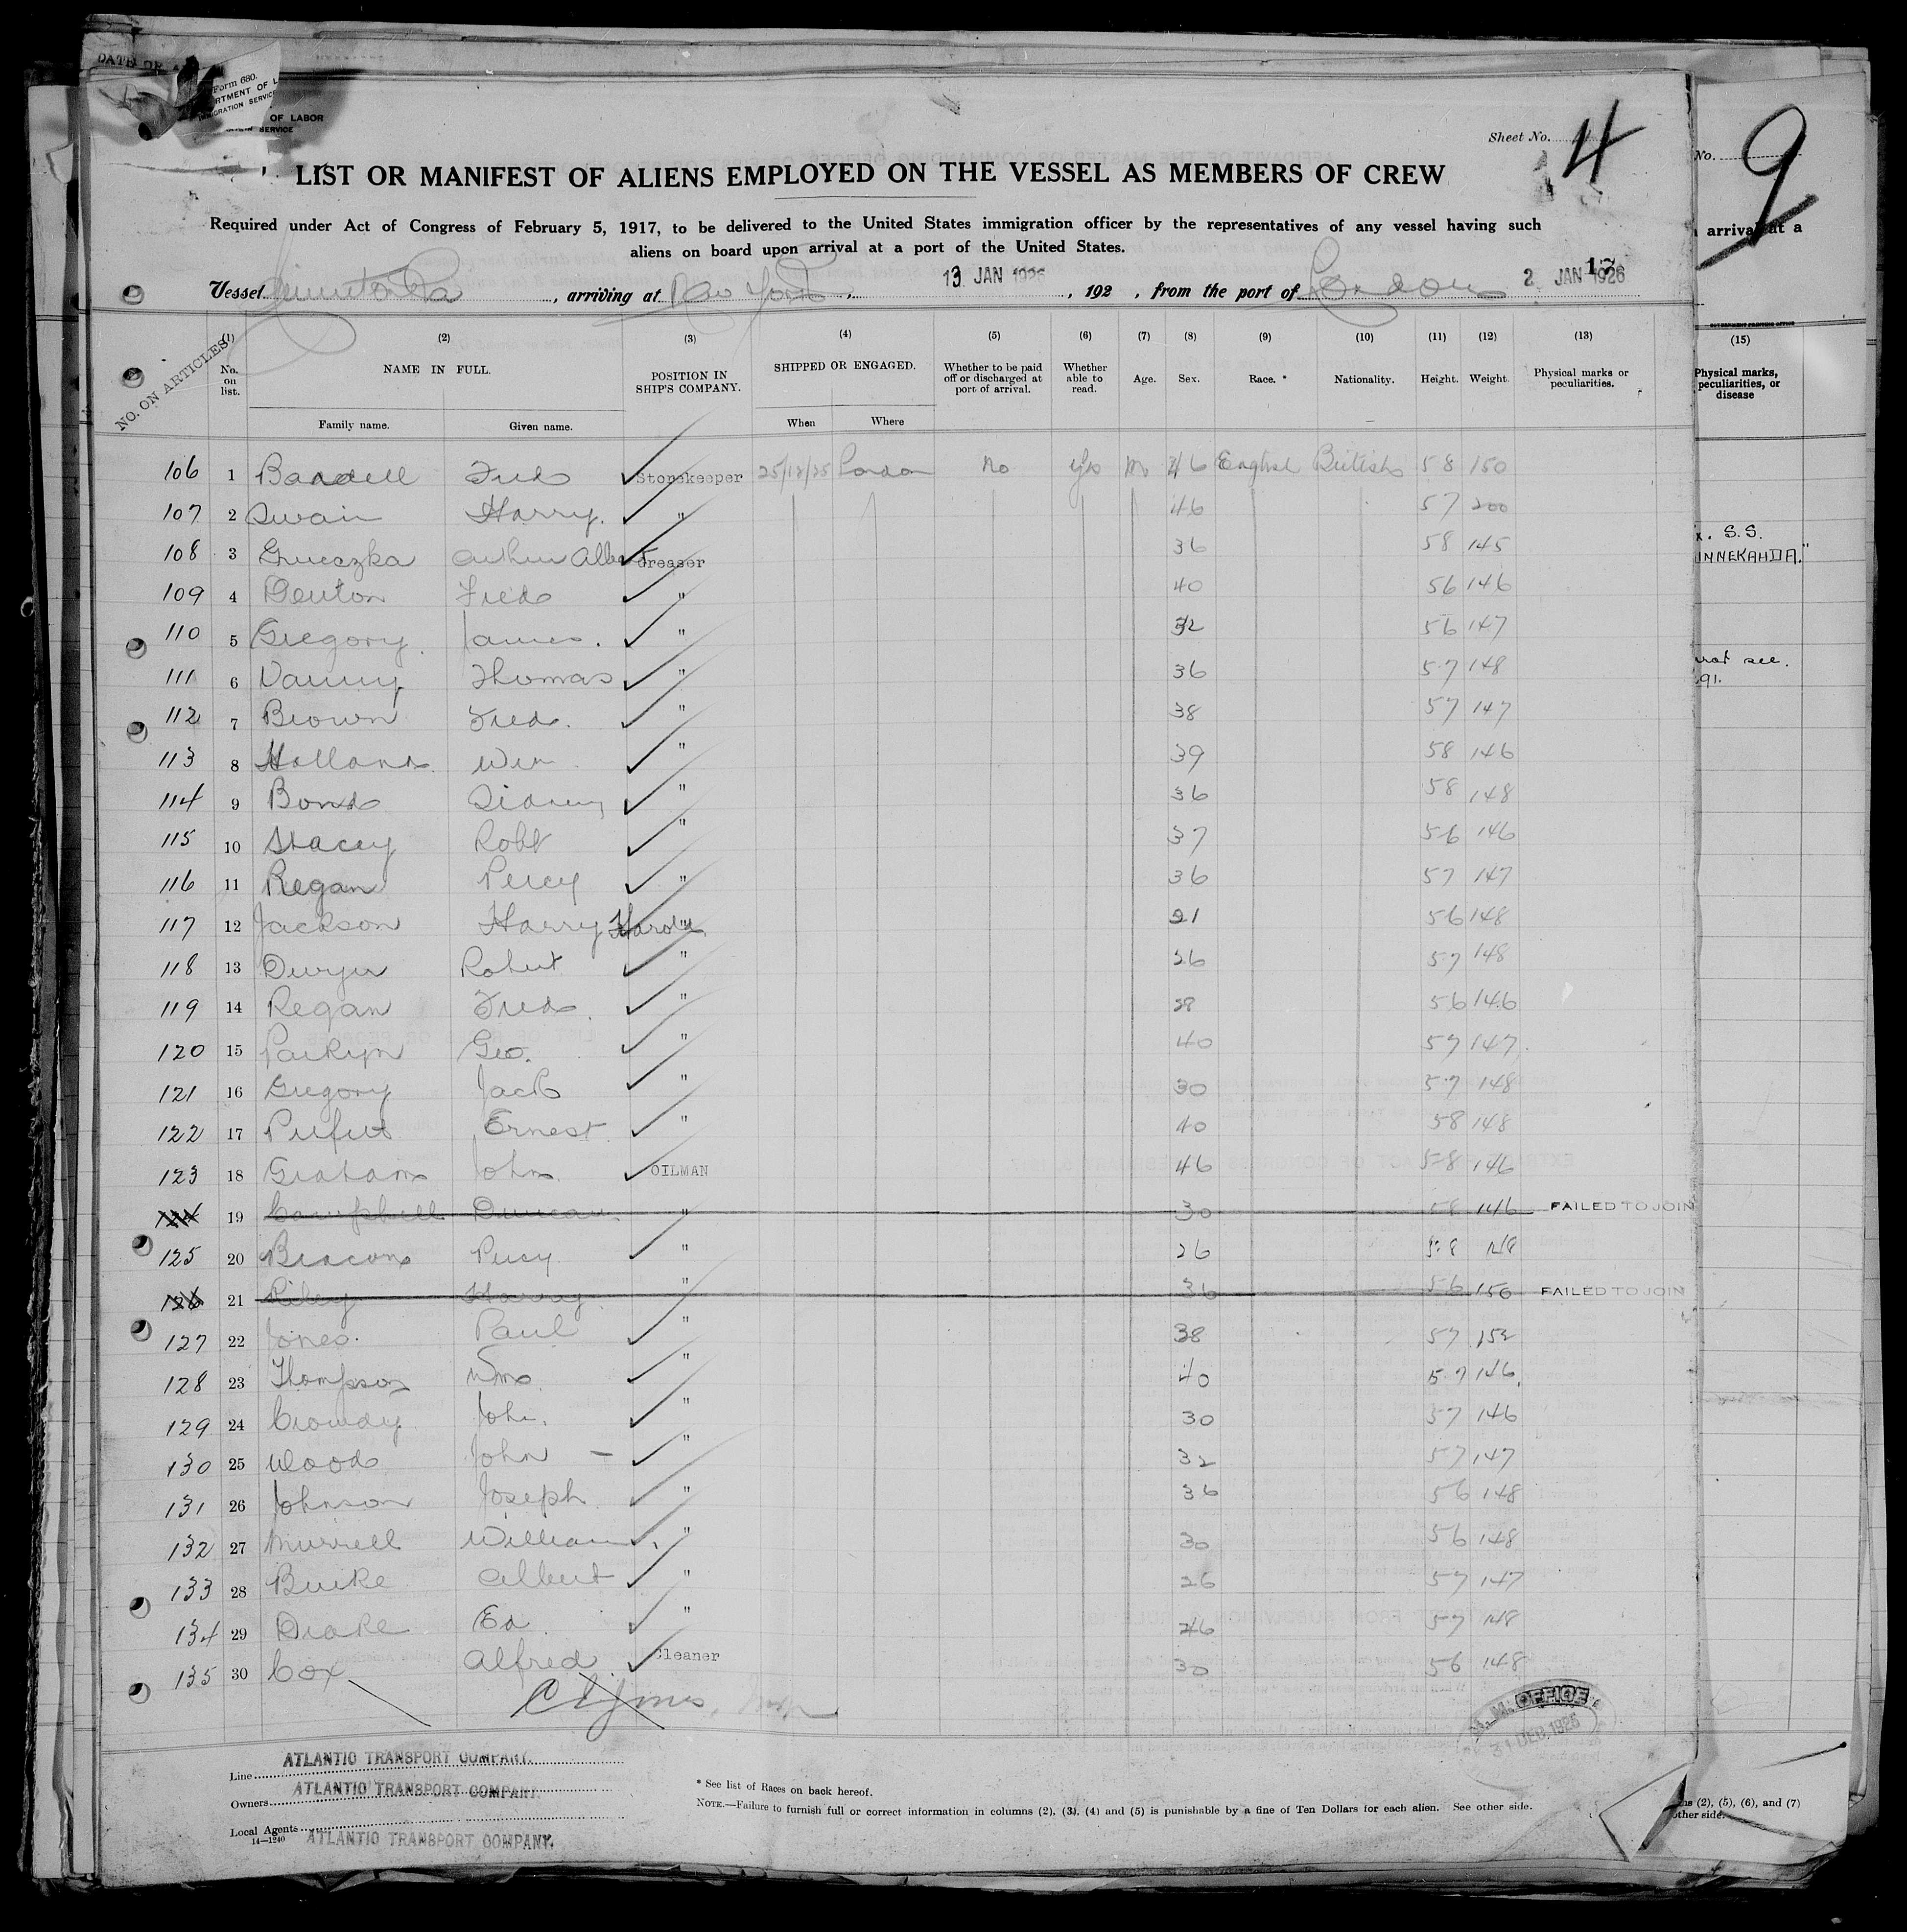 DATE OF A
Form 680.
RTMENT OF L
IMMIGRATION SERVICE
OF LABOR
SERVICE
Sheet No. 4
No. 9
LIST OR MANIFEST OF ALIENS EMPLOYED ON THE VESSEL AS MEMBERS OF CREW
Required under Act of Congress of February 5, 1917, to be delivered to the United States immigration officer by the representatives of any vessel having such
aliens on board upon arrival at a port of the United States.
arrival at a
Vessel , arriving at New York , 13 JAN 1926 , 192 , from the port of London 2 JAN 1926
GOVERNMENT PRINTING OFFICE
NO. ON ARTICLES
(1) (2) (3) (4) (5) (6) (7) (8) (9) (10) (11) (12) (13) (15)
No. on list. NAME IN FULL. POSITION IN SHIP'S COMPANY. SHIPPED OR ENGAGED. Whether to be paid off or discharged at port of arrival. Whether able to read. Age. Sex. Race.* Nationality. Height. Weight. Physical marks or peculiarities. Physical marks, peculiarities, or disease
Family name. Given name. When Where
106 1 Fred Storekeeper 25/12/25 London no yes m 46 English British 58 150
107 2 Swain Harry. " 46 57 200
108 3 Gruczka Arthur Albe Greaser 36 58 145
x. S.S.
INNEKAHDA."
109 4 Denton Fred " 40 56 146
110 5 Gregory. James. " 32 56 147
111 6 Thomas " 36 57 148
not see.
91.
112 7 Brown Fred. " 38 57 147
113 8 Holland Wm " 39 58 146
114 9 Bond Sidney " 36 58 148
115 10 Stacey Robt " 37 56 146
116 11 Regan Percy " 36 57 147
117 12 Jackson Harry Harold " 21 56 148
118 13 Dwyer Robert " 26 57 148
119 14 Regan Fred. " 28 56 146
120 15 Parkyn Geo. " 40 57 147
121 16 Gregory Jack " 30 57 148
122 17 Ernest " 40 58 148
123 18 Graham John OILMAN 46 58 146
124 19 Campbell Duncan " 30 58 146 FAILED TO JOIN
125 20 Percy " 26 58 148
126 21 Riley Harry " 36 56 156 FAILED TO JOIN
127 22 Jones. Paul " 38 57 152
128 23 Thompson Wm " 40 57 146
129 24 Crowdy John. " 30 57 146
130 25 Wood John – " 32 57 147
131 26 Johnson Joseph " 36 56 148
132 27 Murrell William " 30 56 148
133 28 Burke Albert " 26 57 147
134 29 Drake Ed " 26 57 148
135 30 Cox Alfred Cleaner 30 56 148
M. M. OFFICE
31 DEC. 1925
Line ATLANTIC TRANSPORT COMPANY.
Owners ATLANTIC TRANSPORT COMPANY.
Local Agents ATLANTIC TRANSPORT COMPANY.
14—1240
* See list of Races on back hereof.
NOTE.—Failure to furnish full or correct information in columns (2), (3), (4) and (5) is punishable by a fine of Ten Dollars for each alien. See other side.
ns (2), (5), (6), and (7)
other side.